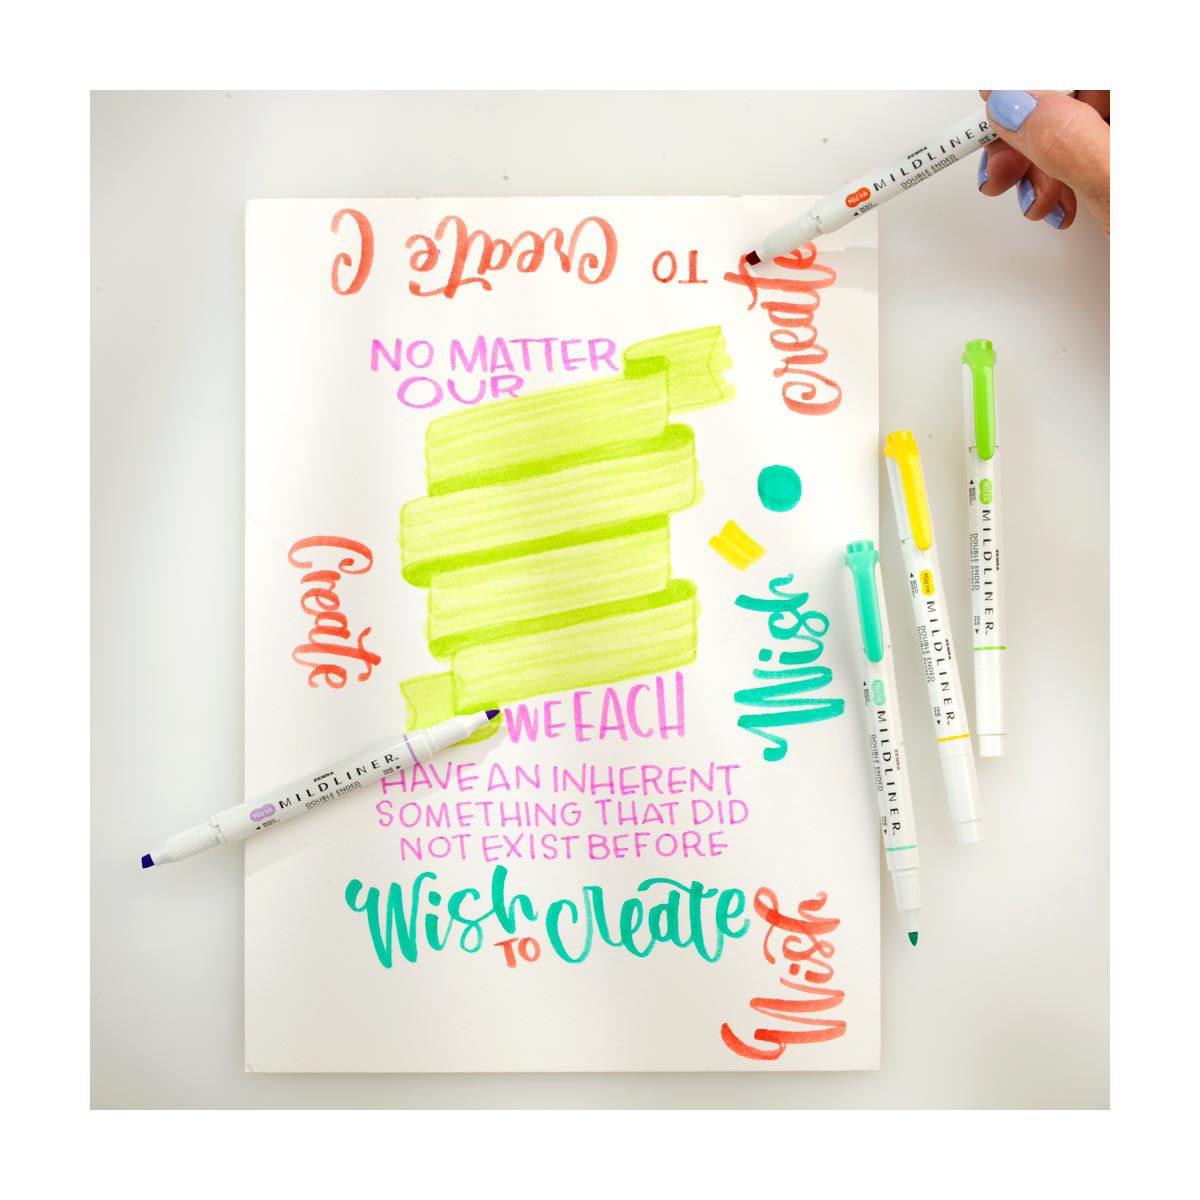 C
Create
TO
Create
NO MATTER
OUR
Create
Wish
WE EACH
HAVE AN INHERENT
SOMETHING THAT DID
NOT EXIST BEFORE
Wish
TO
Create
Wish
ZEBRA
Mild ink MILDLINER™
DOUBLE ENDED
ZEBRA
Mild ink MILDLINER™
DOUBLE ENDED
BOLD
ZEBRA
Mild ink MILDLINER™
DOUBLE ENDED
ZEBRA
Mild ink MILDLINER™
DOUBLE ENDED
ZEBRA
Mild ink MILDLINER™
DOUBLE ENDED